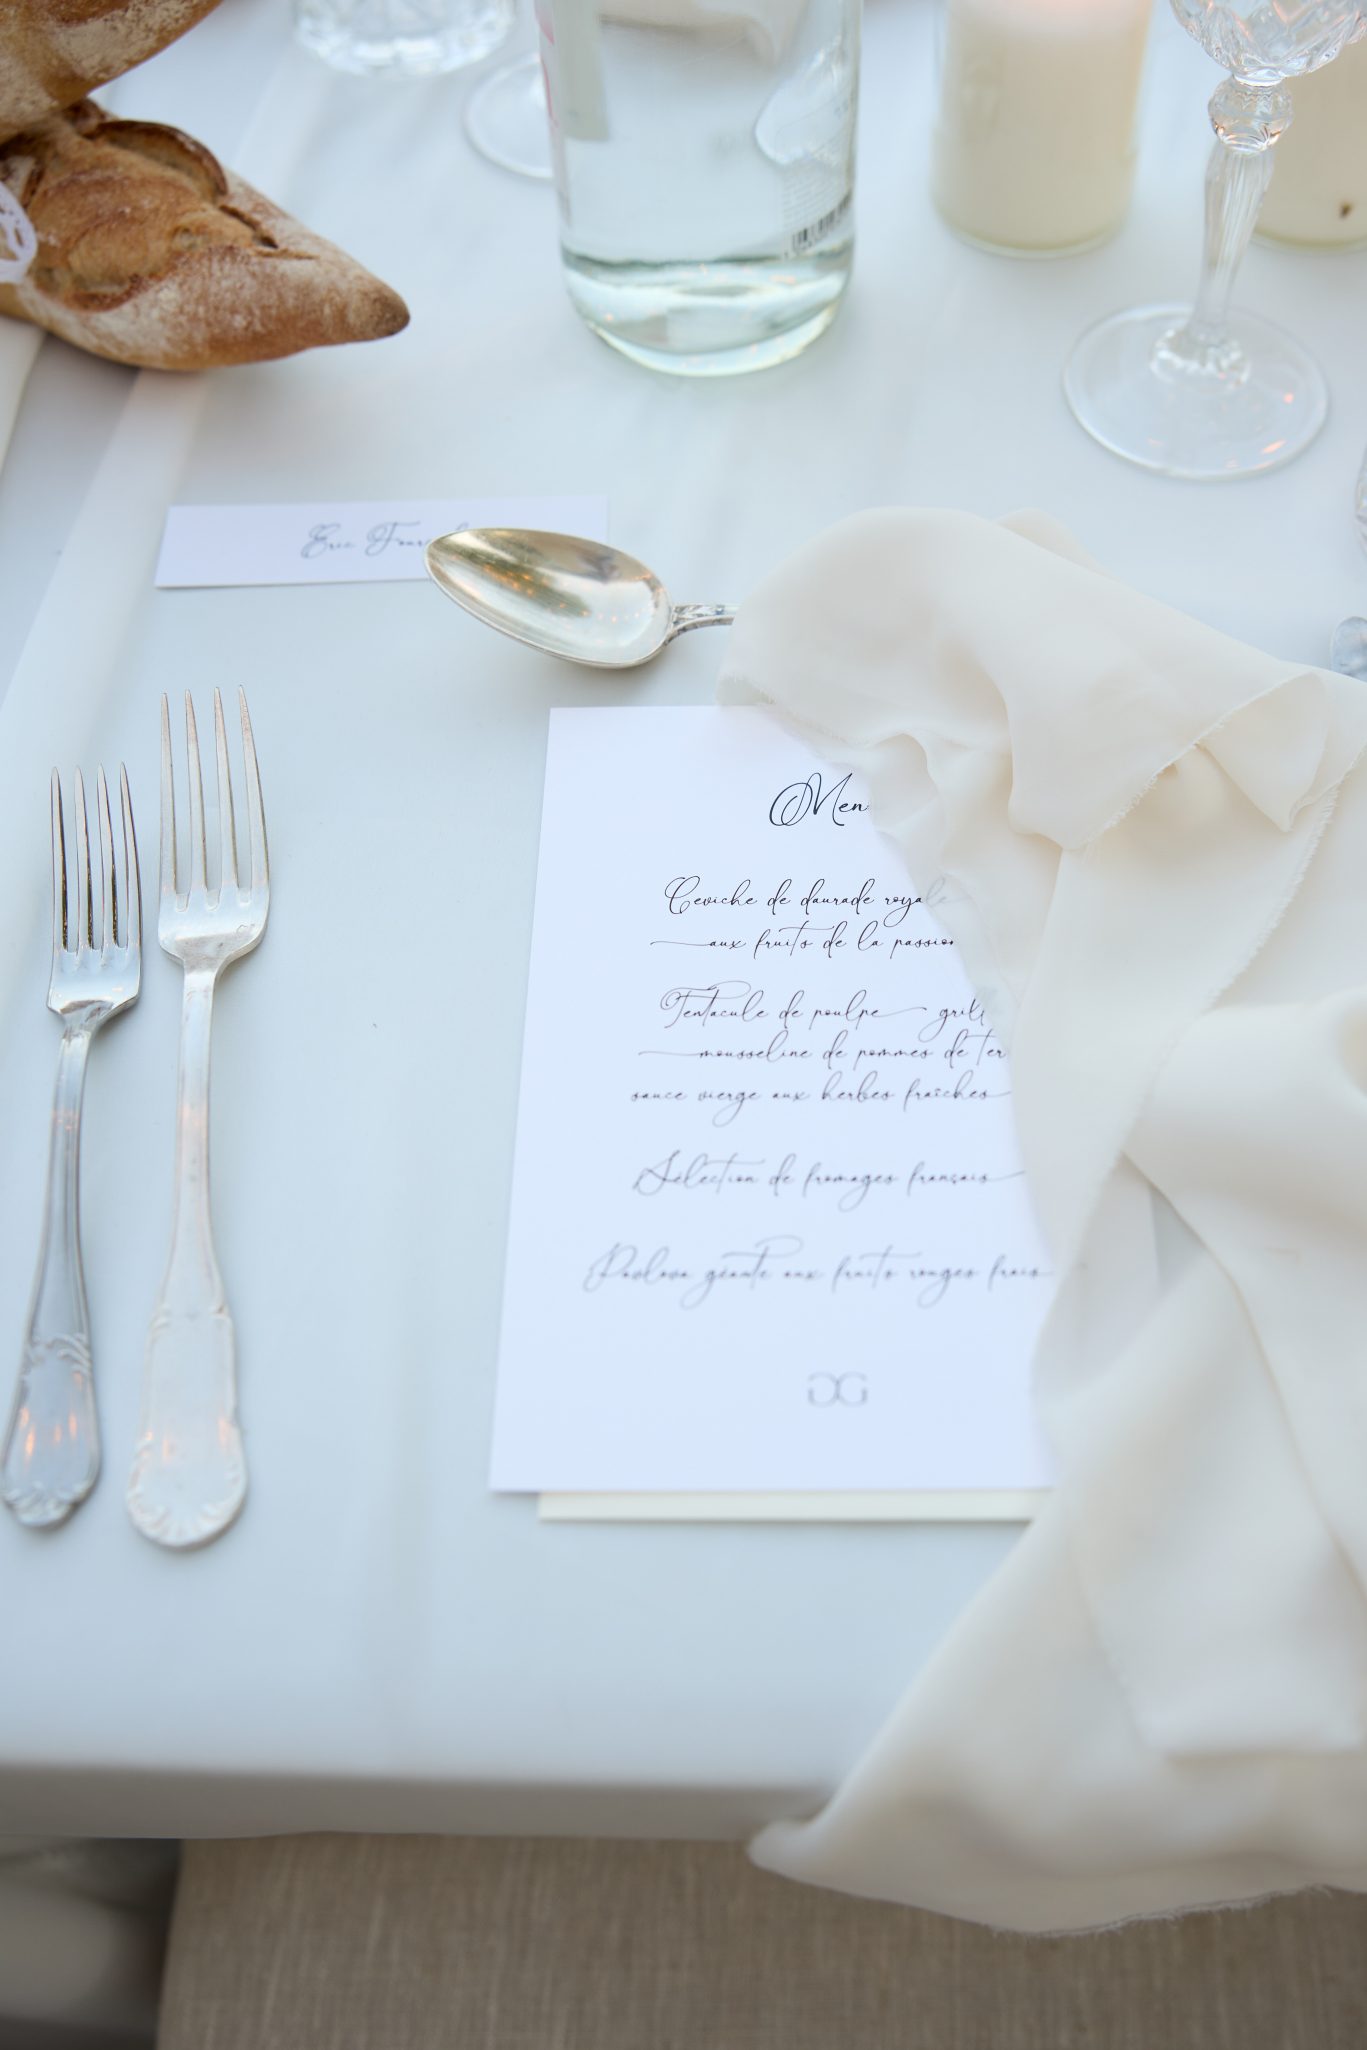 Eric
Men
Ceviche de daurade royale
aux fruits de la passion
Tentacule de poulpe grill
mousseline de pommes de ter
sauce vierge aux herbes fraîches
Sélection de fromages français
Pavlova géante aux fruits rouges frais